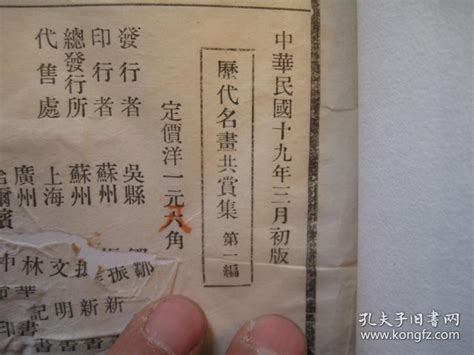 中華民國十九年三月初版
歷代名畫共賞集 第一編
定價洋一元六角
發行者 吳縣 鄒
印行者 蘇州 振新書
總發行所 蘇州 振新書
代售處 上海 文明書
廣州 林記書
中華印
孔夫子旧书网
www.kongfz.com